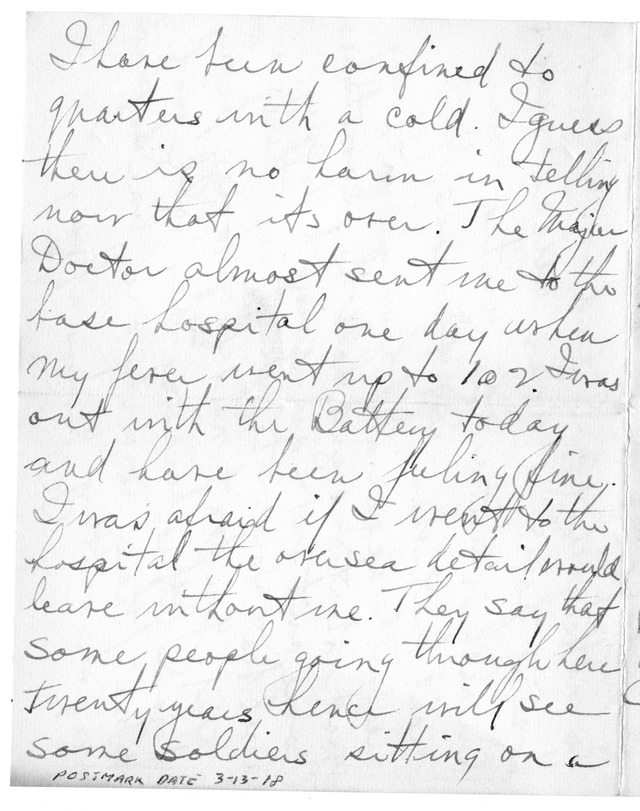 I have been confined to
quarters with a cold. I guess
there is no harm in telling
now that its over. The Major
Doctor almost sent me to the
base hospital one day when
my fever went up to 102. I was
out with the Battery today
and have been feeling fine.
I was afraid if I went to the
hospital the oversea detail would
leave without me. They say that
some people going through here
twenty years hence will see
some soldiers sitting on a
POSTMARK DATE 3-13-18